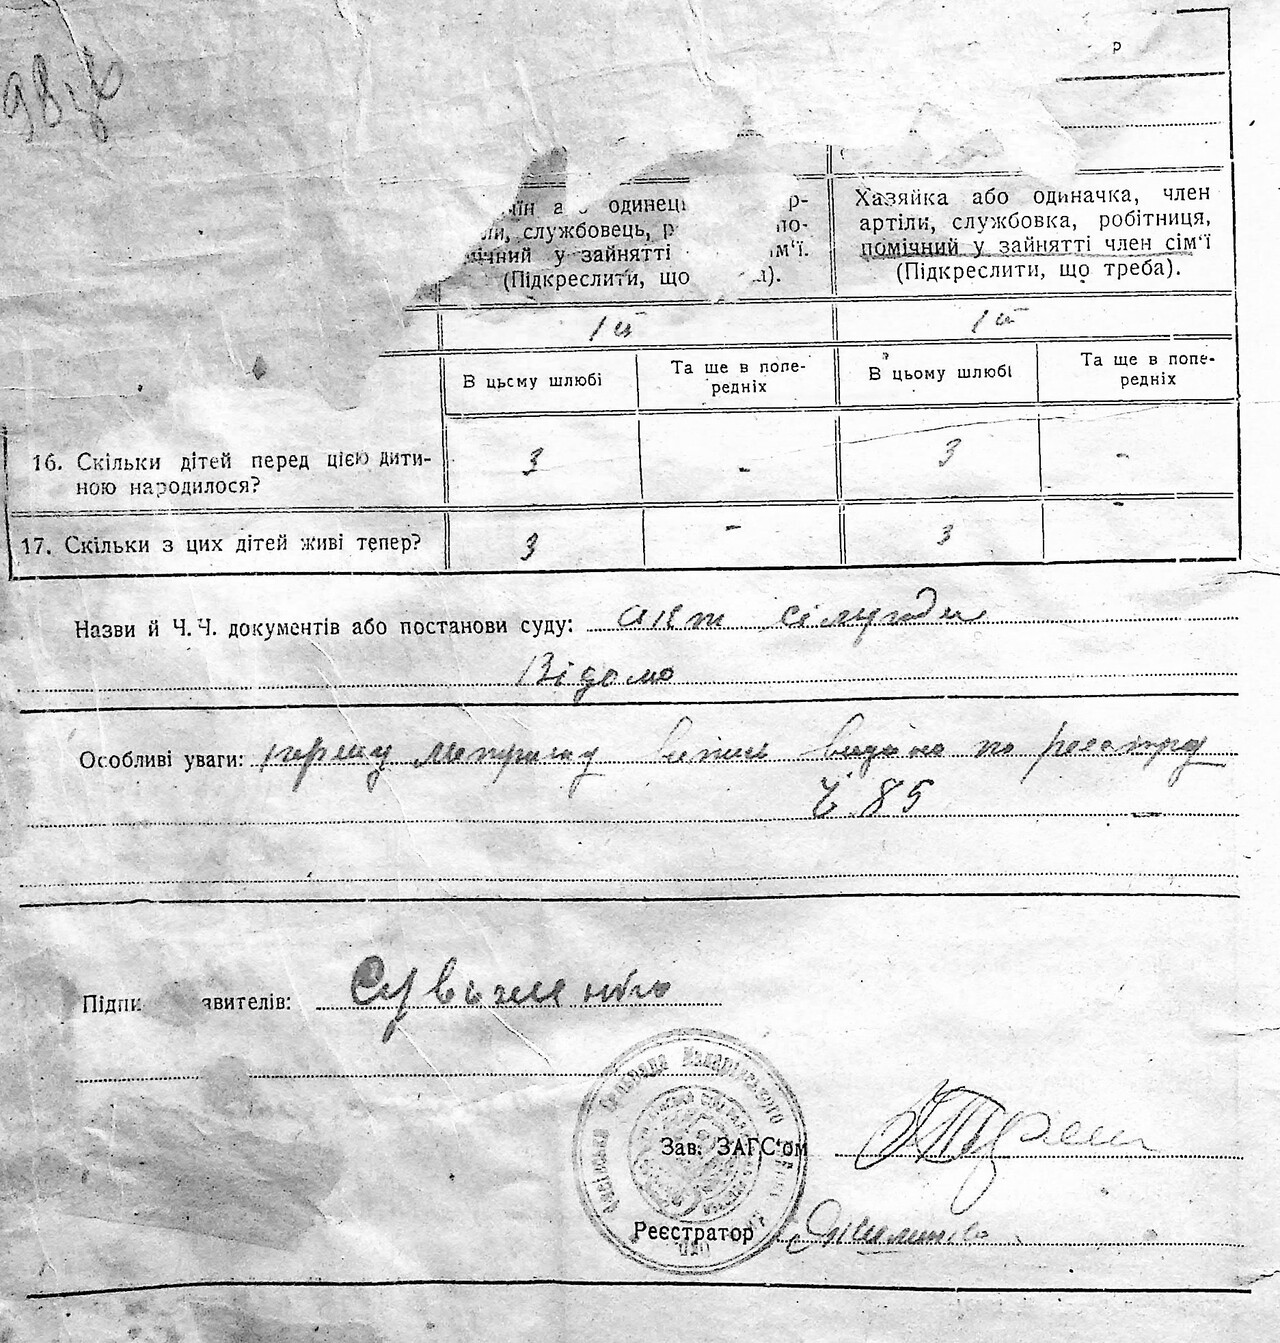 98
р
одинец р-
ли, службовець, р по-
мічний у зайнятті ім'ї.
(Підкреслити, що а).
Хазяйка або одиначка, член
артілі, службовка, робітниця,
помічний у зайнятті член сім'ї
(Підкреслити, що треба).
1й 1й
В цьому шлюбі Та ще в попе-
редніх В цьому шлюбі Та ще в попе-
редніх
16. Скільки дітей перед цією дити-
ною народилося? 3 - 3 -
17. Скільки з цих дітей живі тепер? 3 - 3 -
Назви й Ч. Ч. документів або постанови суду: акт
Відомо
Особливі уваги: першу витяг видано по реєстру
Ч. 85
Підпи явителів:
Сільрада Макарівського
Зав. ЗАГС'ом
Реєстратор